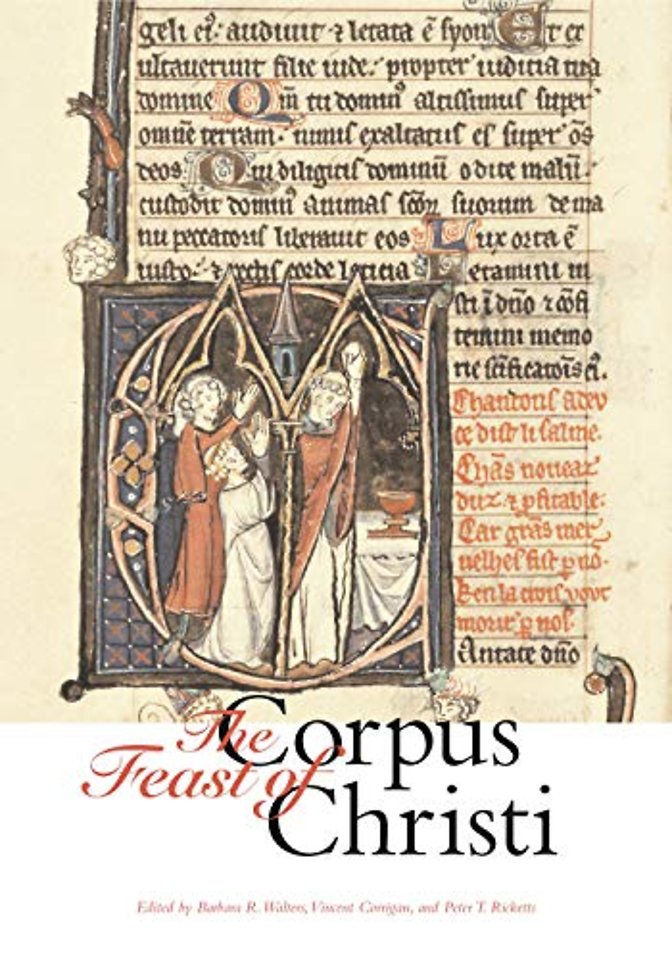 geli eiꝰ: audiuit ⁊ letata ē syon Et ex
ultauerunt filie iude: propter iudicia tua
domine Qm̄ tu dominꝰ altissimus super
omnē terram: nimis exaltatus es super oēs
deos Qui diligitis dominū odite malū:
custodit dominꝰ animas scōꝝ suorum de ma
nu peccatoris liberauit eos Lux orta ē
iusto: ⁊ rectis corde leticia Letamini iu
sti ī dn̄o ⁊ cōfi
temini memo
rie sc̄ificatōis eiꝰ.
Chantons a dev
ce dist li salme.
Chās noueax
duz. ⁊ ꝓfitable.
Car grās mer
uelhes fist p nō.
Ken la crois vout
morir p nos.
Antate dn̄o
The Corpus
Feast of Christi
Edited by Barbara R. Walters, Vincent Corrigan, and Peter T. Ricketts